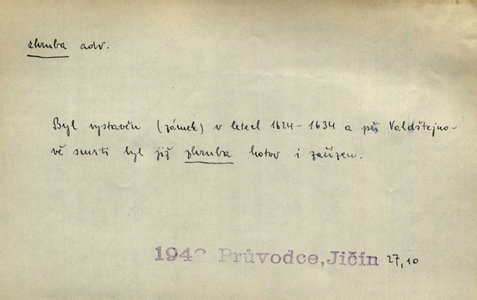 zhruba adv.
Byl vystavěn (zámek) v letech 1624-1634 a při Valdštejno-
vě smrti byl již zhruba hotov i zařízen.
Průvodce, Jičín 27,10